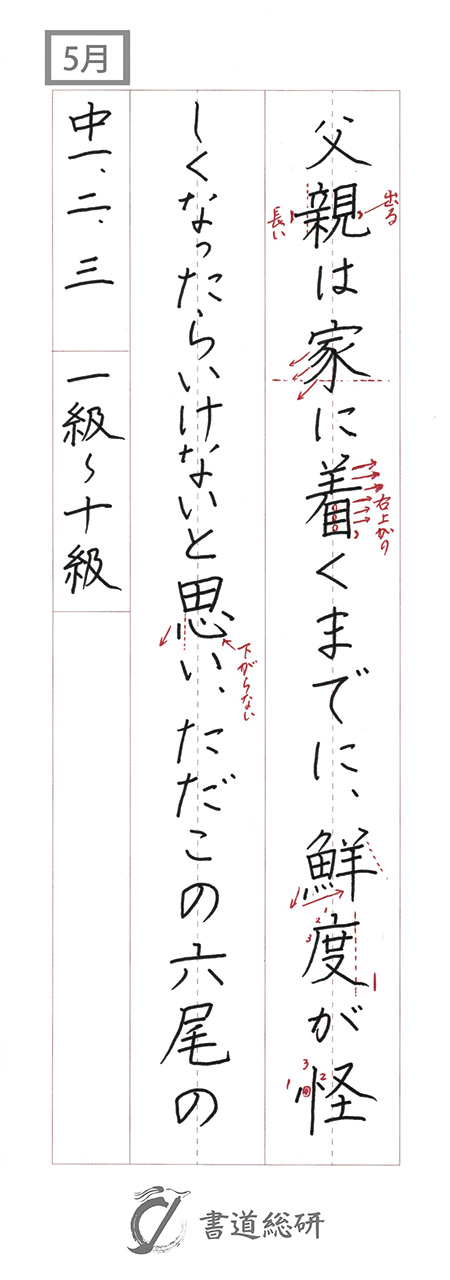 5月
父親は家に着くまでに、鮮度が怪
しくなったらいけないと思い、ただこの六尾の
中一、二、三 一級〜十級
出る
長い
右上がり
下がらない
1
2
3
3
1
2
書道総研